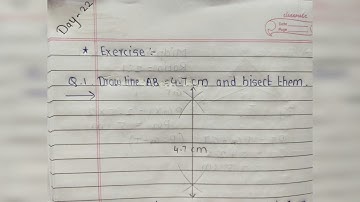 Day-22
classmate
Date
Page
* Exercise :-
Q.1 Draw line AB = 4.7 cm and bisect them.
4.7 cm